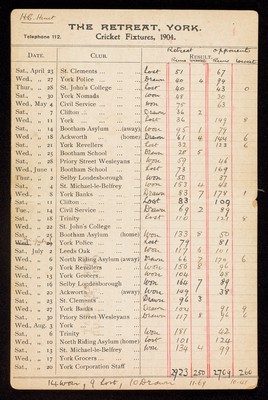 H.C. Hunt
THE RETREAT, YORK.
Telephone 112. Cricket Fixtures, 1904.
Retreat Opponents
DATE. CLUB. RESULT.
Runs Runs
Sat., April 23 St. Clements Lost 51 67
Wed., „ 27 York Police Drawn 40 4 99
Thur., „ 28 St. John's College Lost 40 43 0
Sat., „ 30 York Nomads Won 68 30
Wed., May 4 Civil Service Won 75 63
Sat., „ 7 Clifton Drawn 36 2
Wed., „ 11 York Lost 36 149 8
Sat., „ 14 Bootham Asylum (away) Won 95 79
Wed., „ 18 Ackworth (home) Drawn 61 4 104 6
Sat., „ 21 York Revellers Lost 32 6
Wed., „ 25 Bootham School Drawn 28 5
Sat., „ 28 Priory Street Wesleyans Won 59 46
Wed., June 1 Bootham School Lost 73 169
Thur., „ 2 Selby Londonborough Won 50 37
Sat., „ 4 St. Michael-le-Belfrey Won 153 4 45
Wed., „ 8 York Banks Drawn 83 7 178
Sat., „ 11 Clifton Lost 83 109
Tues., „ 14 Civil Service Drawn 69 2 89
Sat., „ 18 Trinity Lost 110
Wed., „ 22 St. John's College
Sat., „ 25 Bootham Asylum (home) Won 133 8 50
York Police Lost 79 81
Sat., July 2 Leeds Oak Won 117 6 101
Wed., „ 6 North Riding Asylum (away) Drawn 66 7 170 6
Sat., „ 9 York Revellers Won 158 8 96
Wed., „ 13 York Grocers Won 104
Sat., „ 16 Selby Londonborough Won 164 7 89
Wed., „ 20 Ackworth (away) Won 149 38
Sat., „ 23 St. Clements Drawn 96 3
Wed., „ 27 York Banks Drawn
Sat., „ 30 Priory Street Wesleyans Drawn 117 8 96
Wed., Aug. 3 York
Sat., „ 6 Trinity Won 181 42
Wed., „ 10 North Riding Asylum (home) Lost 101 124
Sat., „ 13 St. Michael-le-Belfrey Won 134 4 99
Wed., „ 17 York Grocers
Sat., „ 20 York Corporation Staff
2923 250 2769 266
14 won, 9 lost, 10 Drawn 11.69 10.41